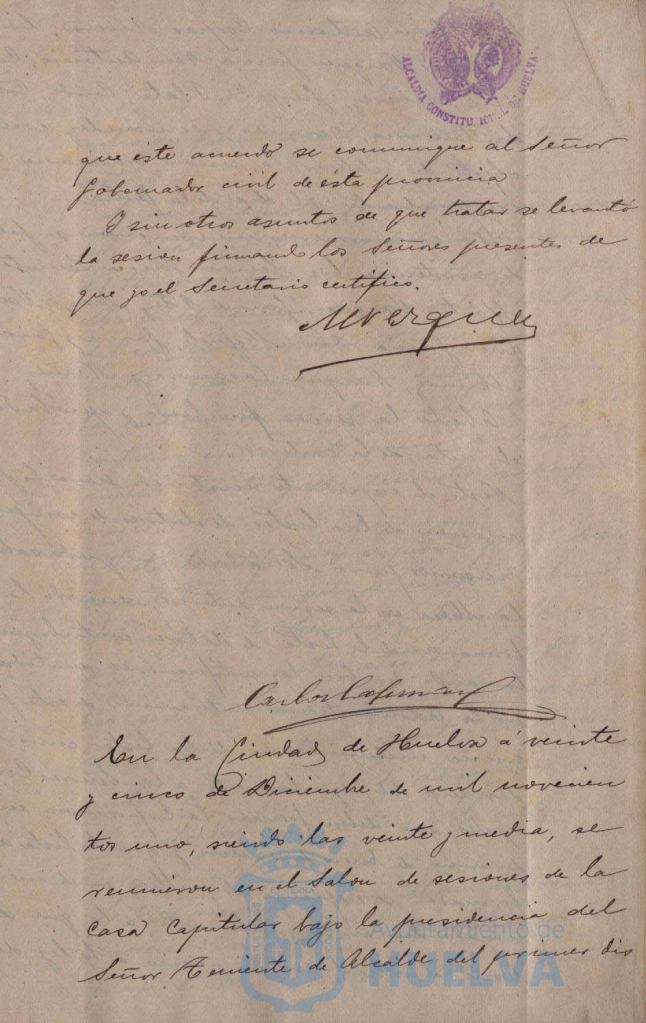 ALCALDIA CONSTITUCIONAL DE HUELVA
que éste acuerdo se comunique al Señor
Gobernador civil de ésta provincia
I sin otros asuntos de que tratar se levantó
la sesion firmando los Señores presentes de
que yo el Secretario certifico.
En la Ciudad de Huelva á veinte
y cinco de Diciembre de mil novecien
tos uno, siendo las veinte y media, se
reunieron en el Salon de sesiones de la
Casa Capitular bajo la presidencia del
Señor Teniente de Alcalde del primer dis
Ayuntamiento de
HUELVA